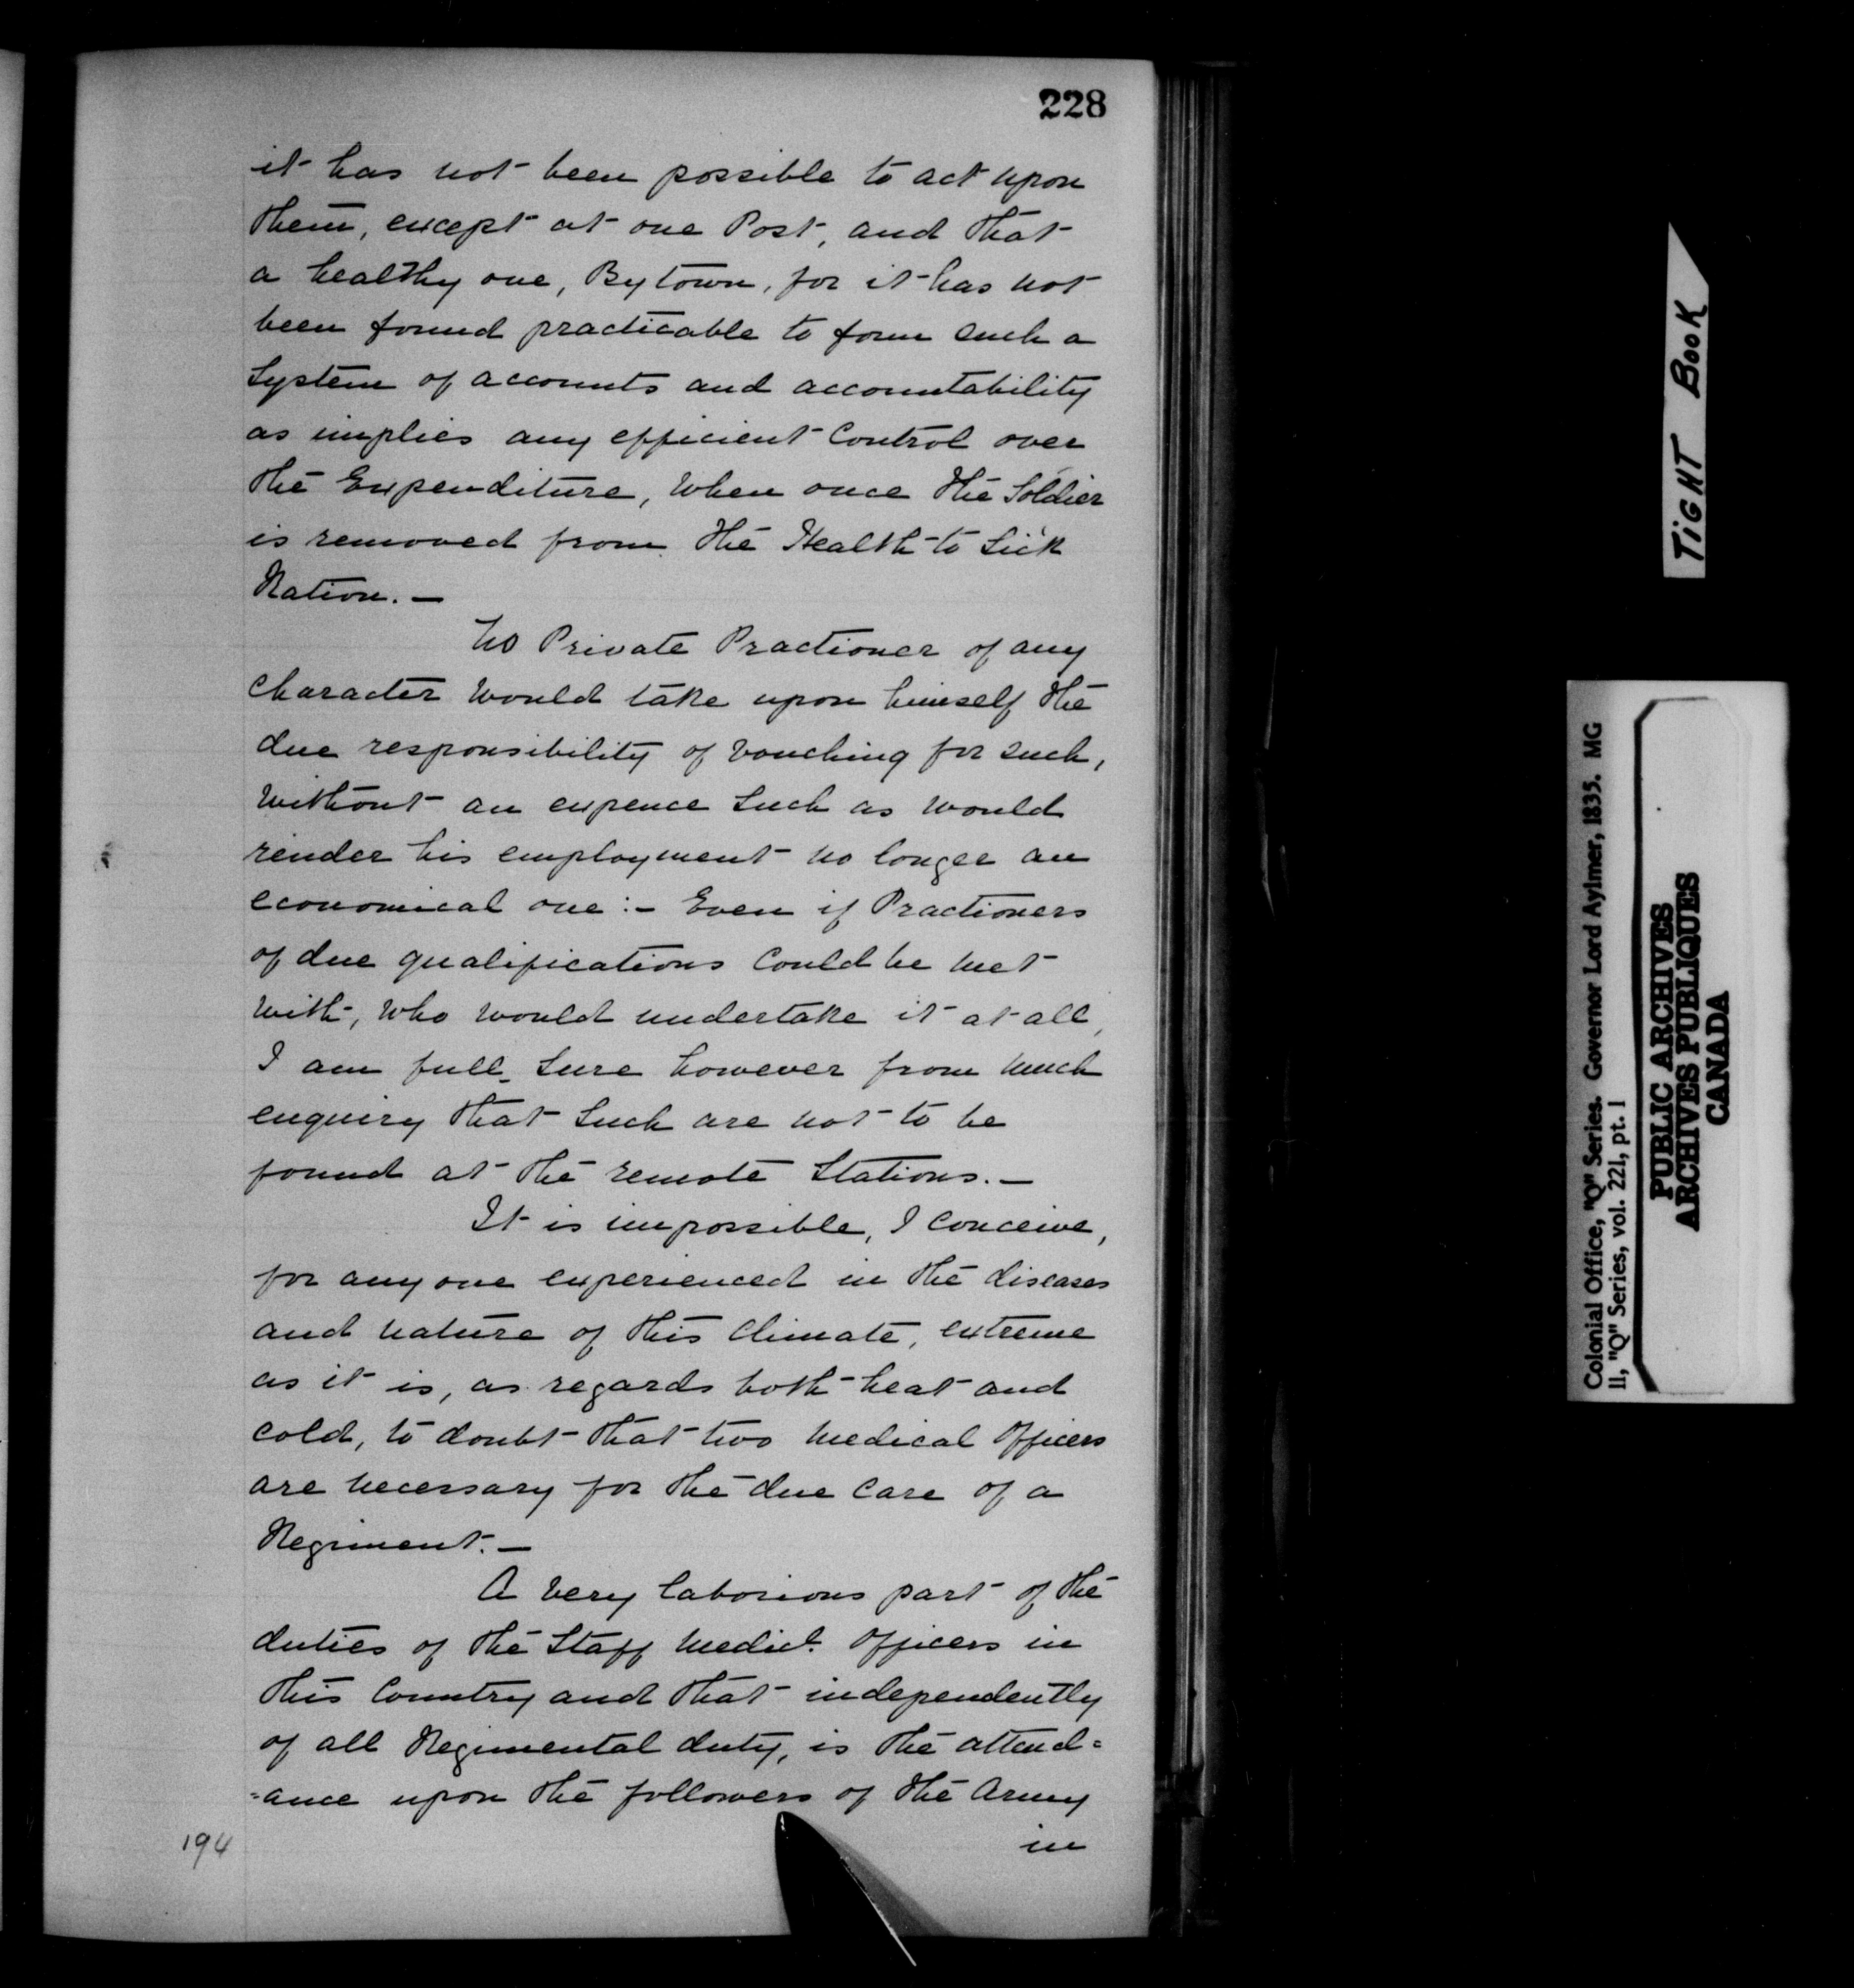 228
it has not been possible to act upon
them, except at one Post, and that
a healthy one, Bytown, for it has not
been found practicable to form such a
System of accounts and accountability
as implies any efficient Control over
the Expenditure, When once the Soldier
is removed from the Health to Sick
Ration. —
No Private Practioner of any
Character Would take upon himself the
due responsibility of Vouching for such,
Without an expence Such as would
render his employment no longer an
economical one :- Even if Practioners
of due qualifications Could be met
With, Who would undertake it at all,
I am full Sure however from much
enquiry that Such are not to be
found at the remote Stations. —
It is impossible, I Conceive,
for any one experienced in the diseases
and nature of this Climate, extreme
as it is, as regards both heat and
Cold, to doubt that two Medical Officers
are necessary for the due Care of a
Regiment. —
A Very laborious part of the
duties of the Staff Medicl. Officers in
this Country and that independently
of all Regimental duty, is the attend=
=ance upon the followers of the Army
in
194
TIGHT BOOK
Colonial Office, "Q" Series. Governor Lord Aylmer, 1835. MG
11, "Q" Series, vol. 221, pt. 1
PUBLIC ARCHIVES
ARCHIVES PUBLIQUES
CANADA